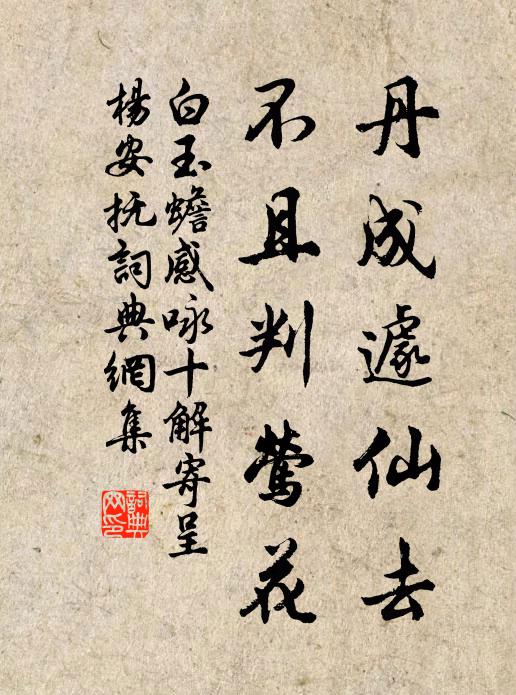 丹成遽仙去
不且判鶯花
白玉蟾感咏十解寄呈
楊安抚詞典網集
詞典網印